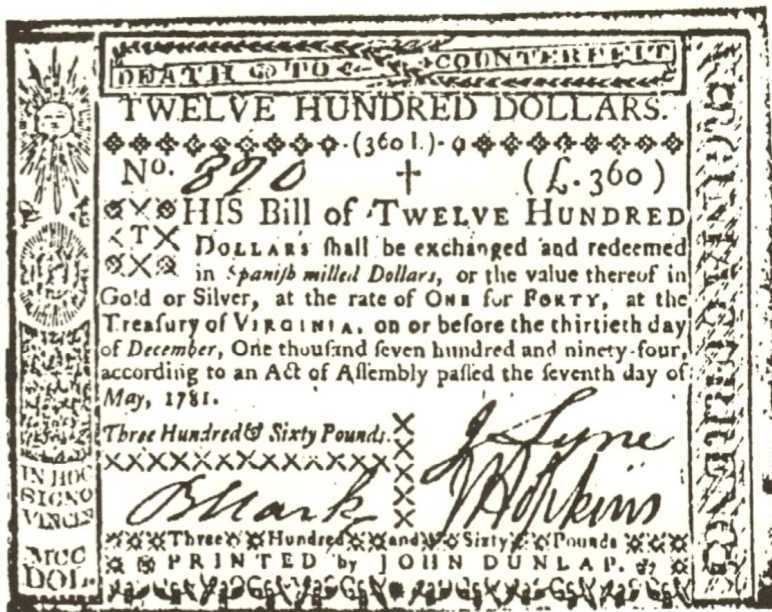 DEATH TO COUNTERFEIT
TWELVE HUNDRED DOLLARS.
(360 l.)
No. 890 (£. 360)
THIS Bill of TWELVE HUNDRED
DOLLARS ſhall be exchanged and redeemed
in Spaniſh milled Dollars, or the value thereof in
Gold or Silver, at the rate of ONE for FORTY, at the
Treaſury of VIRGINIA, on or before the thirtieth day
of December, One thouſand ſeven hundred and ninety-four,
according to an Act of Aſſembly paſſed the ſeventh day of
May, 1781.
Three Hundred & Sixty Pounds.
J Lyne
B Stark J Hopkins
Three Hundred and Sixty Pounds
PRINTED by JOHN DUNLAP.
IN HOC
SIGNO
VINCIN
MCC
DOL.